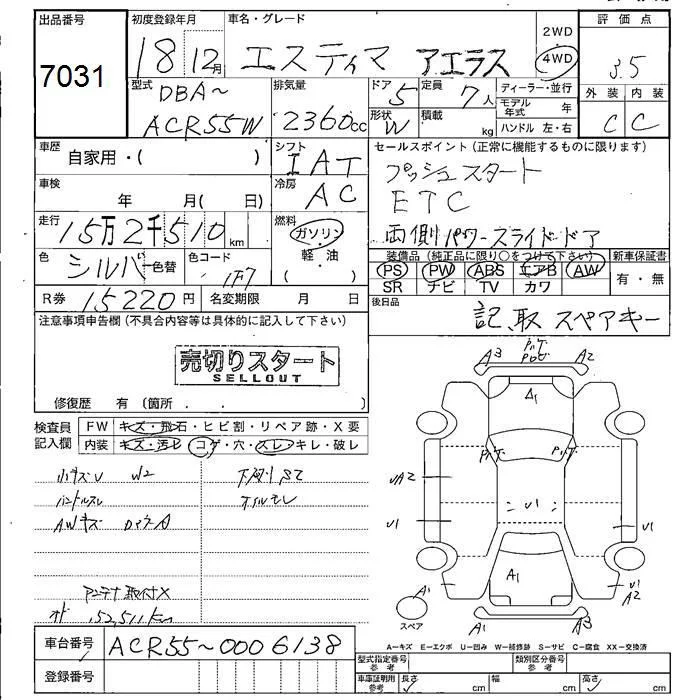 出品番号 初度登録年月 車名・グレード 2WD 評価点
7031 18 12月 エスティマ アエラス 4WD 3.5
型式 DBA~ 排気量 ドア 5 定員 7人 ディーラー・並行 外装 内装
ACR55W 2360cc 形状 W 積載 kg モデル年式 年 C C
ハンドル 左・右
車歴 自家用・( ) シフト IAT セールスポイント(正常に機能するものに限ります)
車検 年 月(日) 冷房 AC プッシュスタート
ETC
走行 15万2千510km 燃料 ガソリン 両側パワースライドドア
軽・油 装備品(純正品に限り○をつけて下さい) 新車保証書
色 シルバー 色替 色コード 1F7 PS PW ABS エアB AW 有・無
SR ナビ TV カワ
R券 15220円 名変期限 月 日 後日品
記、取 スペアキー
注意事項申告欄(不具合内容等は具体的に記入して下さい)
売切りスタート
SELLOUT
修復歴 有(箇所 . . )
検査員記入欄 FW キズ・飛石・ヒビ割・リペア跡・X要
内装 キズ・汚レ・コゲ・穴・スレ・キレ・破レ
小キズU W2 下廻りS2
ハンドルスレ オイルモレ
AWキズ
アンテナ取付X
152,511km
A3 A2
A1
UA2
U1 U1 U1
A1
A1 U1
A2
スペア A1 A3
A－キズ E－エクボ U－凹み W－補修跡 S－サビ C－腐食 XX－交換済
車台番号 ACR55~0006138
登録番号
型式指定番号 参考 類別区分番号 参考
車庫証明用 参考 長さ cm 幅 cm 高さ cm